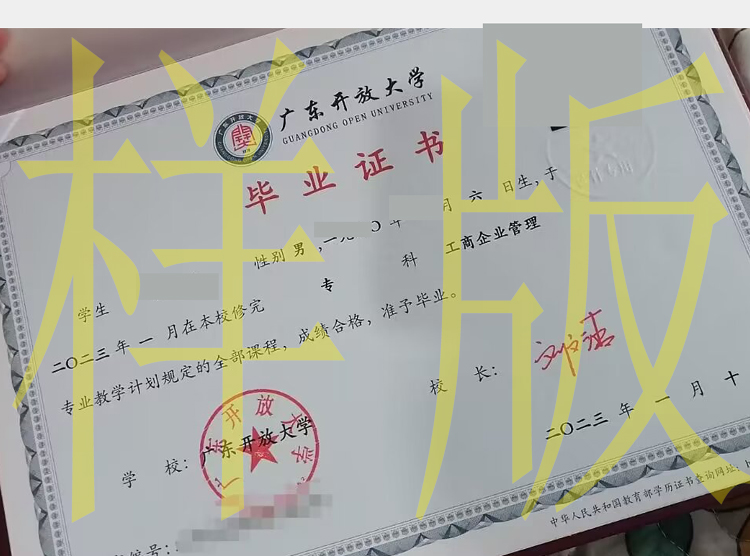 样版
广东开放大学
GUANGDONG OPEN UNIVERSITY
毕业证书
学生 性别 男 ,一九 〇 年 月 六 日生,于
二〇二三 年 一 月在本校修完 专 科 工商企业管理
专业教学计划规定的全部课程,成绩合格,准予毕业。
学 校: 广东开放大学
校 长:
二〇二三 年 一 月 十
编号:
中华人民共和国教育部学历证书查询网址: